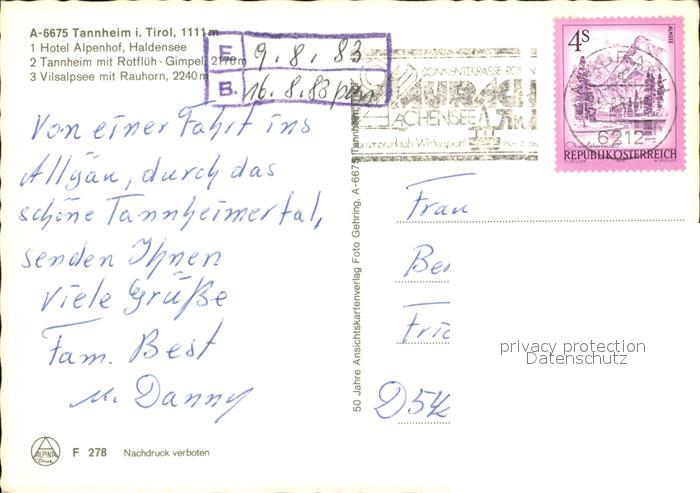 A-6675 Tannheim i. Tirol, 1111 m
1 Hotel Alpenhof, Haldensee
2 Tannheim mit Rotflüh - Gimpel, 2176 m
3 Vilsalpsee mit Rauhorn, 2240 m
E. 9. 8. 83
B. 16. 8. 83
SONNENTERRASSE
ACHENSEE
Wintersport
6212
4 S
REPUBLIK ÖSTERREICH
Von einer Fahrt ins
Allgäu, durch das
schöne Tannheimertal,
senden Ihnen
viele Grüße
Fam. Best
u. Danny
50 Jahre Ansichtskartenverlag Foto Gehring, A-6675 Tannheim,
Frau
D54
privacy protection
Datenschutz
ALPINA
F 278 Nachdruck verboten